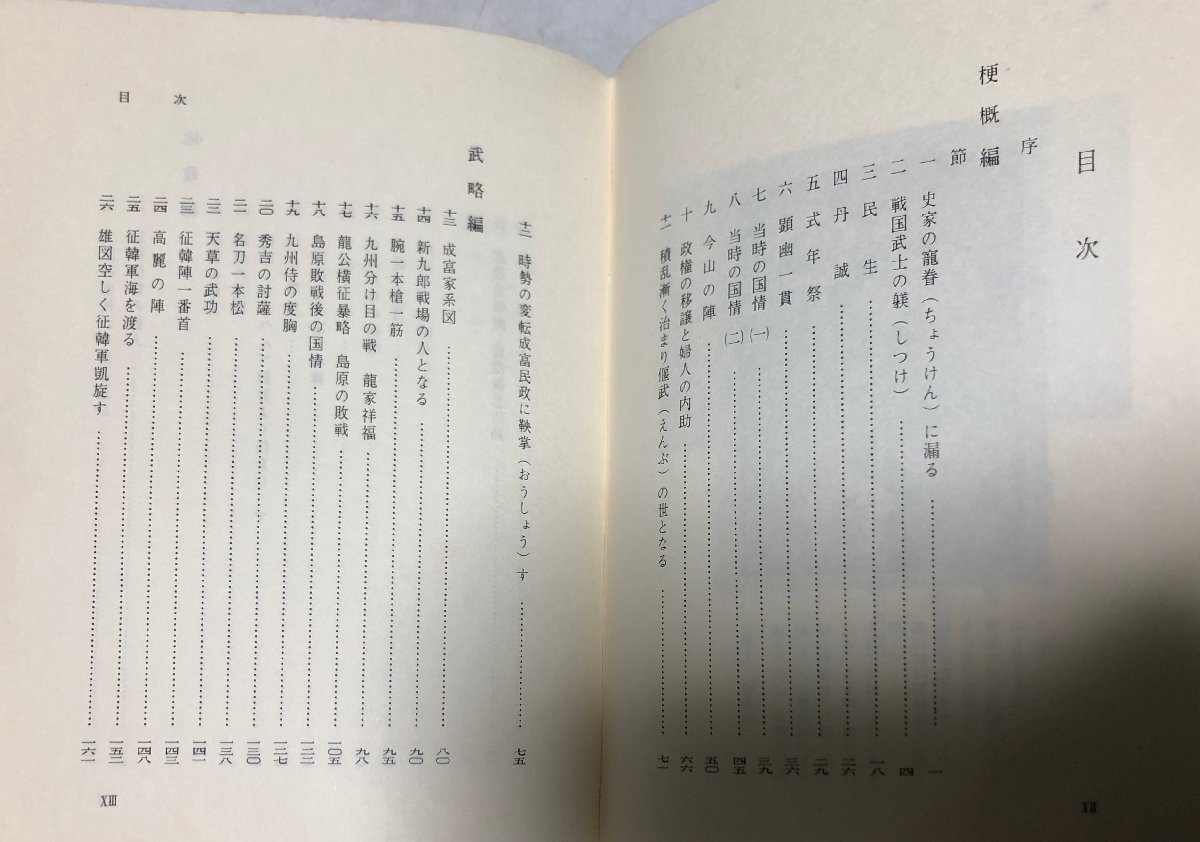 目次
序
梗概編
節
一 史家の寵眷(ちょうけん)に漏る……一
二 戦国武士の躾(しつけ)……四
三 民生……一八
四 丹誠……二六
五 式年祭……二九
六 顕幽一貫……三六
七 当時の国情(一)……三九
八 当時の国情(二)……四五
九 今山の陣……五〇
十 政権の移譲と婦人の内助……六六
十一 積乱漸く治まり偃武(えんぶ)の世となる……七一
XII
目次
十二 時勢の変転成富民政に鞅掌(おうしょう)す……七五
武略編
十三 成富家系図……八〇
十四 新九郎戦場の人となる……九〇
十五 腕一本槍一筋……九五
十六 九州分け目の戦 龍家祥福……九八
十七 龍公横征暴略 島原の敗戦……一〇五
十八 島原敗戦後の国情……一二二
十九 九州侍の度胸……一二七
二〇 秀吉の討薩……一三〇
二一 名刀一本松……一三八
二二 天草の武功……一四一
二三 征韓陣一番首……一四三
二四 高麗の陣……一四八
二五 征韓軍海を渡る……一五二
二六 雄図空しく征韓軍凱旋す……一六一
XIII